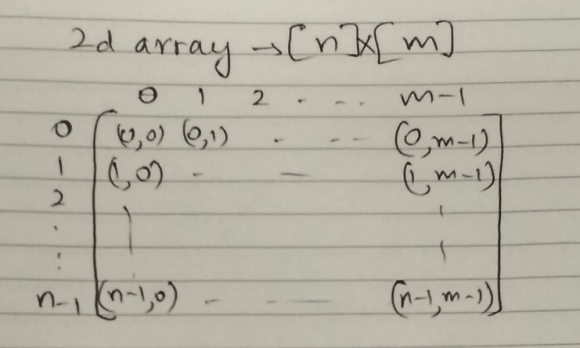 2d array → [n]x[m]
0 1 2 . - .. m-1
0 (0,0) (0,1) - -- (0,m-1)
1 (1,0) - — (1,m-1)
2
.
:
n-1 (n-1,0) - -- — (n-1,m-1)